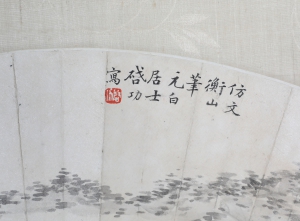 仿文
衡山
筆
元白
居士
啓功
寫